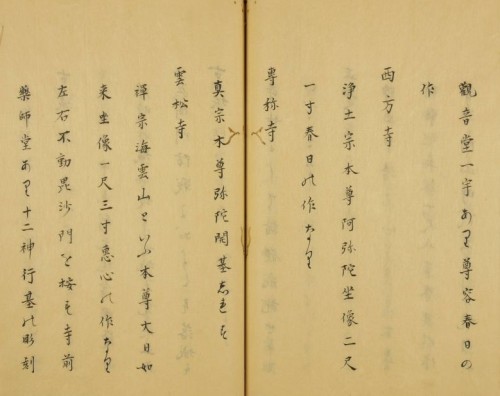 觀音堂一宇あり尊容春日の
作
西方寺
淨土宗本尊阿弥陀坐像二尺
一寸春日の作なり
専称寺
真宗本尊弥陀開基しれす
雲松寺
禅宗海雲山といふ本尊大日如
来坐像一尺三寸恵心の作なり
左右不動毘沙門を按す寺前
藥師堂あり十二神行基の彫刻